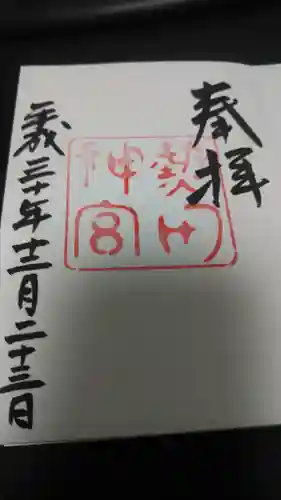 奉拝
熱田神宮
平成三十年十二月二十三日